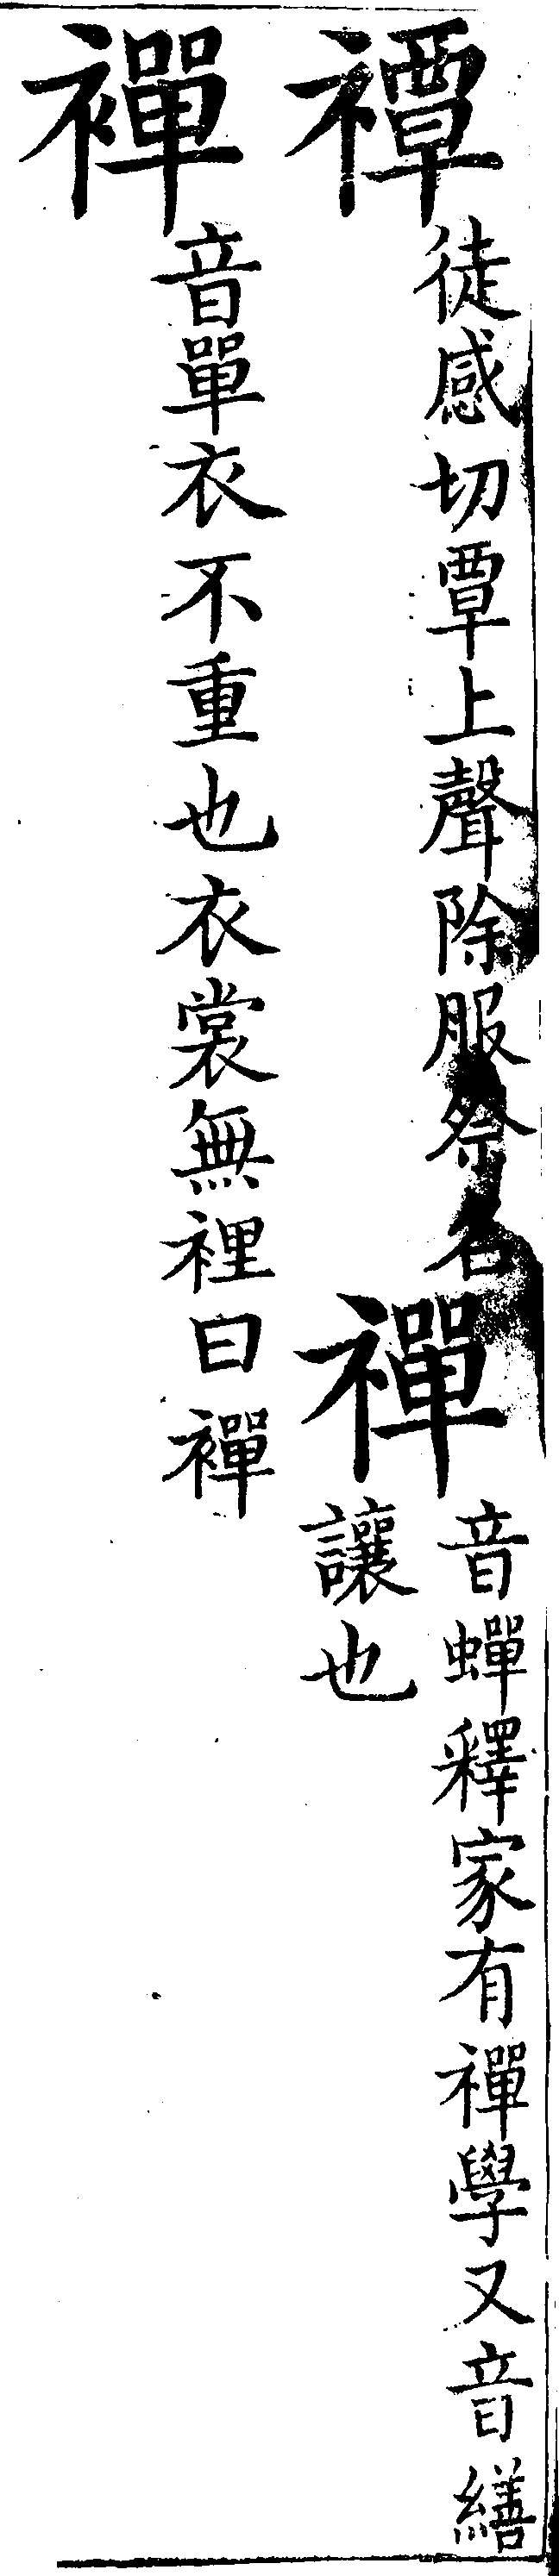 禫徒感切覃上聲除服祭名禪音蟬釋家有禪學又音繕
讓也
襌音單衣不重也衣裳無裡曰襌